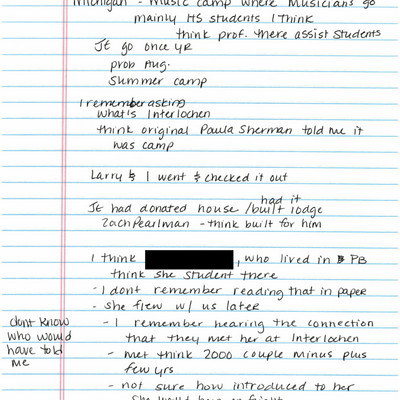 Michigan - Music camp where musicians go
mainly HS students I think
think prof. there assist students
JE go once yr
prob Aug.
summer camp
I remember asking
what's Interlochen
think original Paula Sherman told me it
was camp
Larry & I went & checked it out
had it
JE had donated house /built lodge
Zach Pearlman - think built for him
I think , who lived in PB
think she student there
- I dont remember reading that in paper
- she flew w/ us later
dont know
who would
have told
me
- I remember hearing the connection
that they met her at Interlochen
- met think 2000 couple minus plus
few yrs
- not sure how introduced to her
She would have on flight